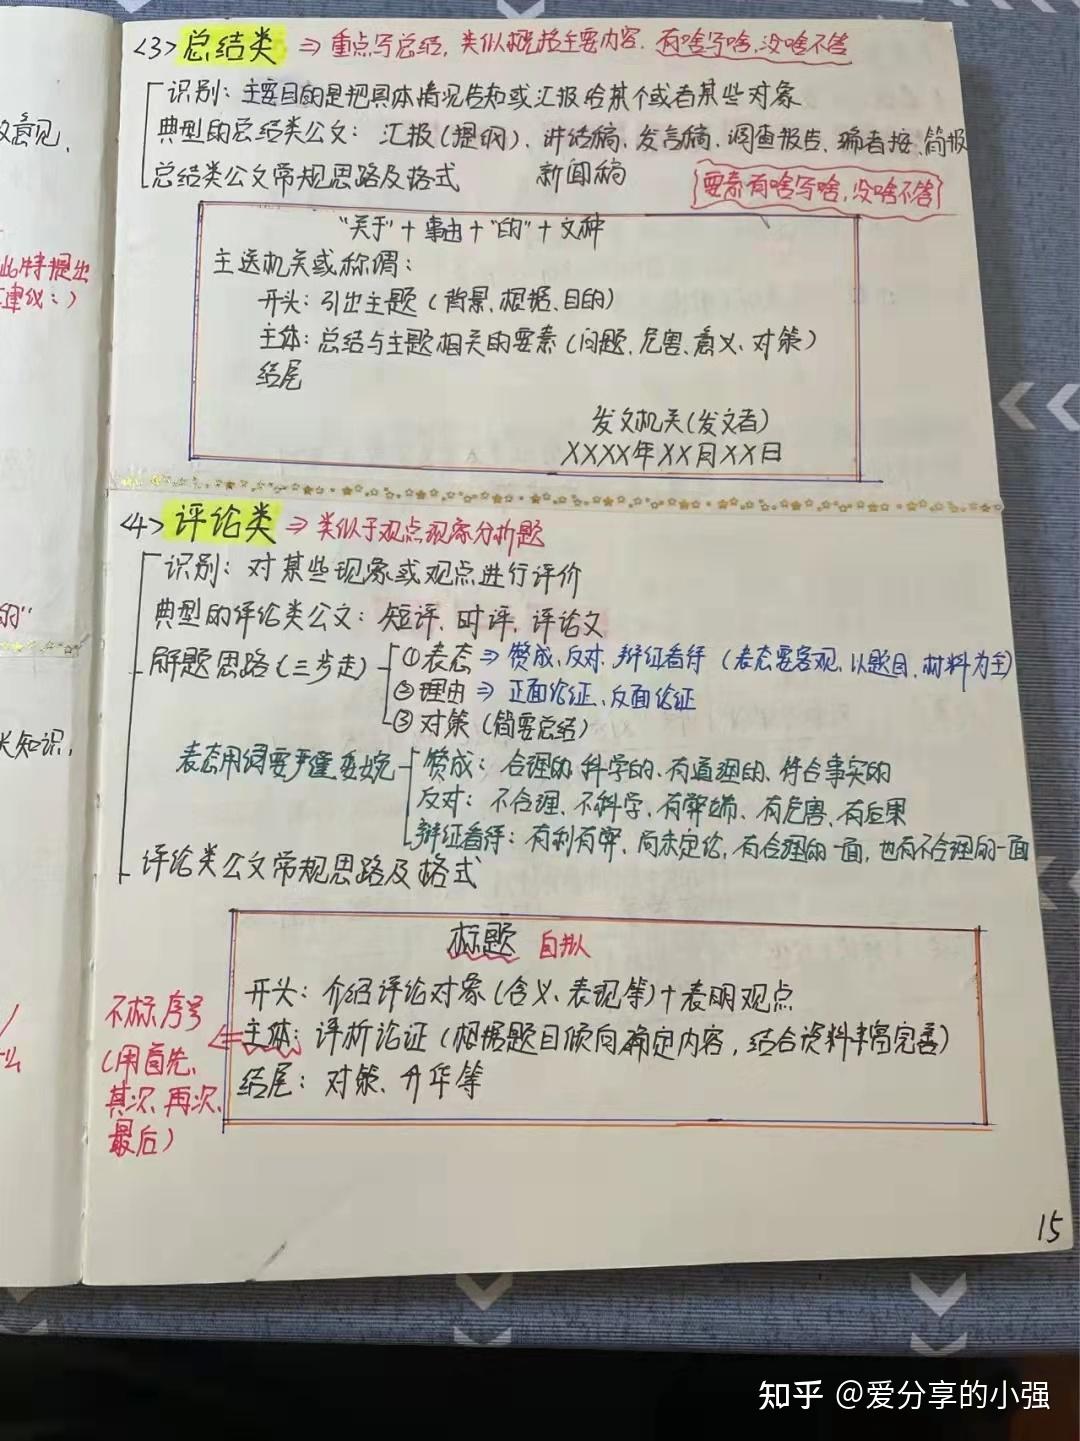 <3> 总结类 ⇒ 重点写总结, 类似概括主要内容. 有啥写啥,没啥不答
识别: 主要目的是把具体情况告知或汇报给某个或者某些对象
典型的总结类公文: 汇报(提纲)、讲话稿、发言稿、调查报告、编者按、简报
新闻稿
总结类公文常规思路及格式
要素有啥写啥,没啥不答
"关于"+事由+"的"+文种
主送机关或称谓:
开头: 引出主题 (背景、根据、目的)
主体: 总结与主题相关的要素 (问题、危害、意义、对策)
结尾
发文机关(发文者)
XXXX年XX月XX日
<4> 评论类 ⇒ 类似于观点现象分析题
识别: 对某些现象或观点进行评价
典型的评论类公文: 短评、时评、评论文
解题思路(三步走)
①表态 ⇒ 赞成、反对、辩证看待 (表态要客观,以题目、材料为主)
②理由 ⇒ 正面论证、反面论证
③对策 (简要总结)
表态用词要严谨委婉
赞成: 合理的、科学的、有道理的、符合事实的
反对: 不合理、不科学、有弊端、有危害、有后果
辩证看待: 有利有弊、尚未定论、有合理的一面,也有不合理的一面
评论类公文常规思路及格式
标题 自拟
开头: 介绍评论对象(含义、表现等)+表明观点
主体: 评析论证 (根据题目倾向确定内容,结合资料丰富完善)
结尾: 对策、升华等
不标序号
(用首先、
其次、再次、
最后)
15
意见,
此特提出
建议:)
的"
知识,
知乎 @爱分享的小强